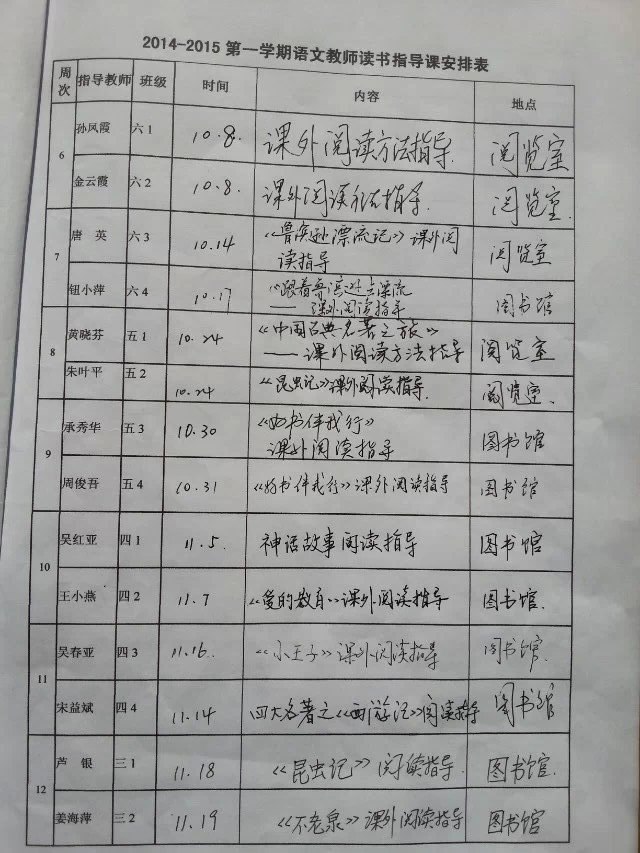 2014-2015 第一学期语文教师读书指导课安排表
周次 指导教师 班级 时间 内容 地点
6 孙凤霞 六1 10.8. 课外阅读方法指导. 阅览室
金云霞 六2 10.8. 课外阅读方法指导. 阅览室.
7 唐 英 六3 10.14 《鲁滨逊漂流记》课外阅
读指导 阅览室
钮小萍 六4 10.17 《跟着鲁滨逊去漂流
——课外阅读指导 图书馆
8 黄晓芬 五1 10.24 《中国古典名著之旅》
——课外阅读方法指导 阅览室
朱叶平 五2 10.24 《昆虫记》课外阅读指导. 阅览室.
9 承秀华 五3 10.30 《好书伴我行》
课外阅读指导 图书馆
周俊吾 五4 10.31 《好书伴我行》课外阅读指导 图书馆
10 吴红亚 四1 11.5. 神话故事阅读指导 图书馆
王小燕 四2 11.7 《爱的教育》课外阅读指导 图书馆.
11 吴春亚 四3 11.16. 《小王子》课外阅读指导 图书馆.
宋益斌 四4 11.14 四大名著之《西游记》阅读指导 图书馆
12 芦 银 三1 11.18 《昆虫记》阅读指导. 图书馆.
姜海萍 三2 11.19 《不老泉》课外阅读指导 图书馆